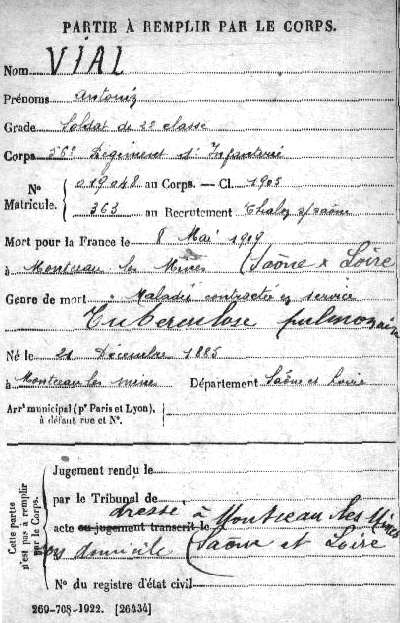 PARTIE À REMPLIR PAR LE CORPS.
Nom VIAL
Prénoms Antoine
Grade Soldat de 2e classe
Corps 56e Régiment d'Infanterie
N° Matricule. 019048 au Corps. — Cl. 1905
363 au Recrutement Chalon s/saône
Mort pour la France le 8 Mai 1919
à Montceau les Mines (Saône & Loire
Genre de mort Maladie contractée en service
Tuberculose pulmonaire
Né le 21 Décembre 1885
à Montceau les mines Département Saône et Loire
Arrt municipal (pr Paris et Lyon),
à défaut rue et N°.
Cette partie n'est pas à remplir par le Corps.
Jugement rendu le
par le Tribunal de
dressé à Montceau les Mines
acte ou jugement transcrit le
domicile (Saône et Loire
N° du registre d'état civil
269-708-1922. [26434]